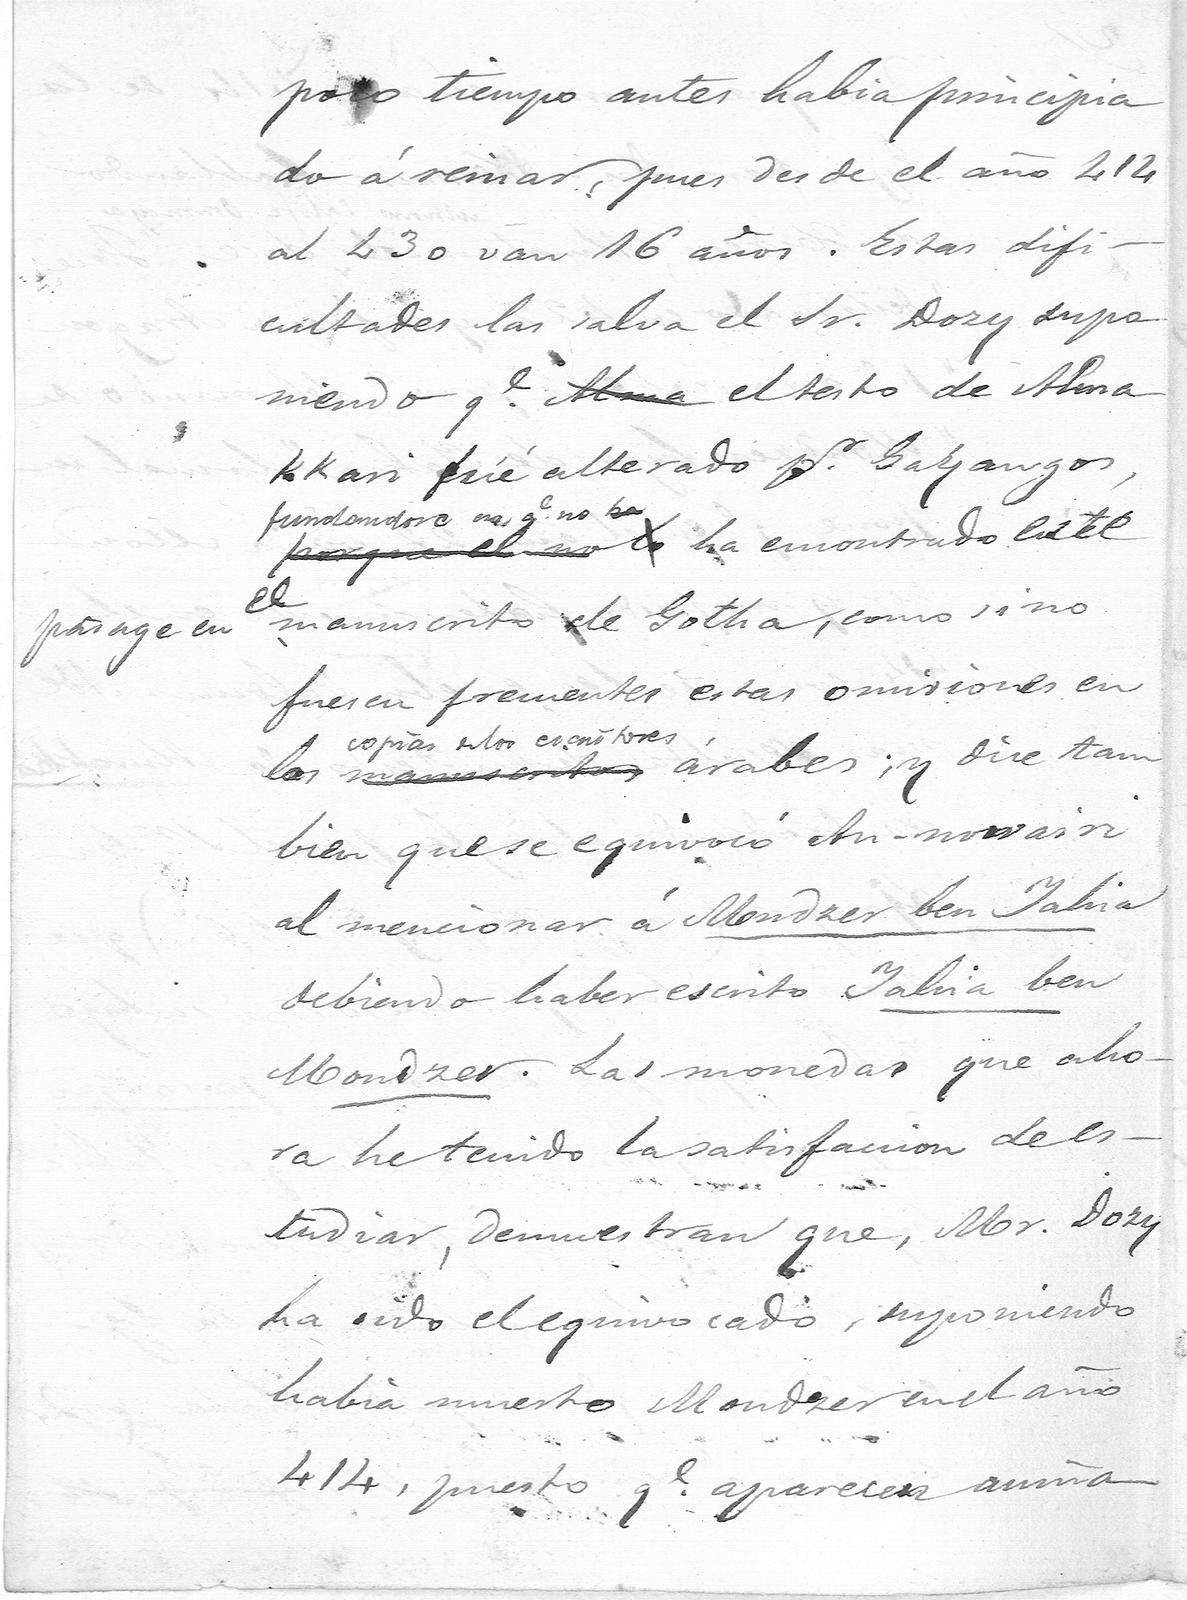 poco tiempo antes habia principia
do á reinar, pues desde el año 414
al 430 van 16 años. Estas difi-
cultades las salva el Sr. Dozy supo
niendo q.e Alma el testo de Alma
kkari fué alterado p.r Gayangos,
fundandose en q.e no ha
porque el no lo ha encontrado este
el
pasage en manuscrito de Gotha, como si no
fuesen frecuentes estas omisiones en
copias de los escritores
los manuscritos árabes; y dice tam
bien que se equivocó An-nowairi
al mencionar á Mondzer ben Iahia
debiendo haber escrito Iahia ben
Mondzer. Las monedas que aho-
ra he tenido la satisfaccion de es-
tudiar, demuestran que, Mr. Dozy
ha sido el equivocado, suponiendo
habia muerto Mondzer en el año
414, puesto q.e aparecen acuña